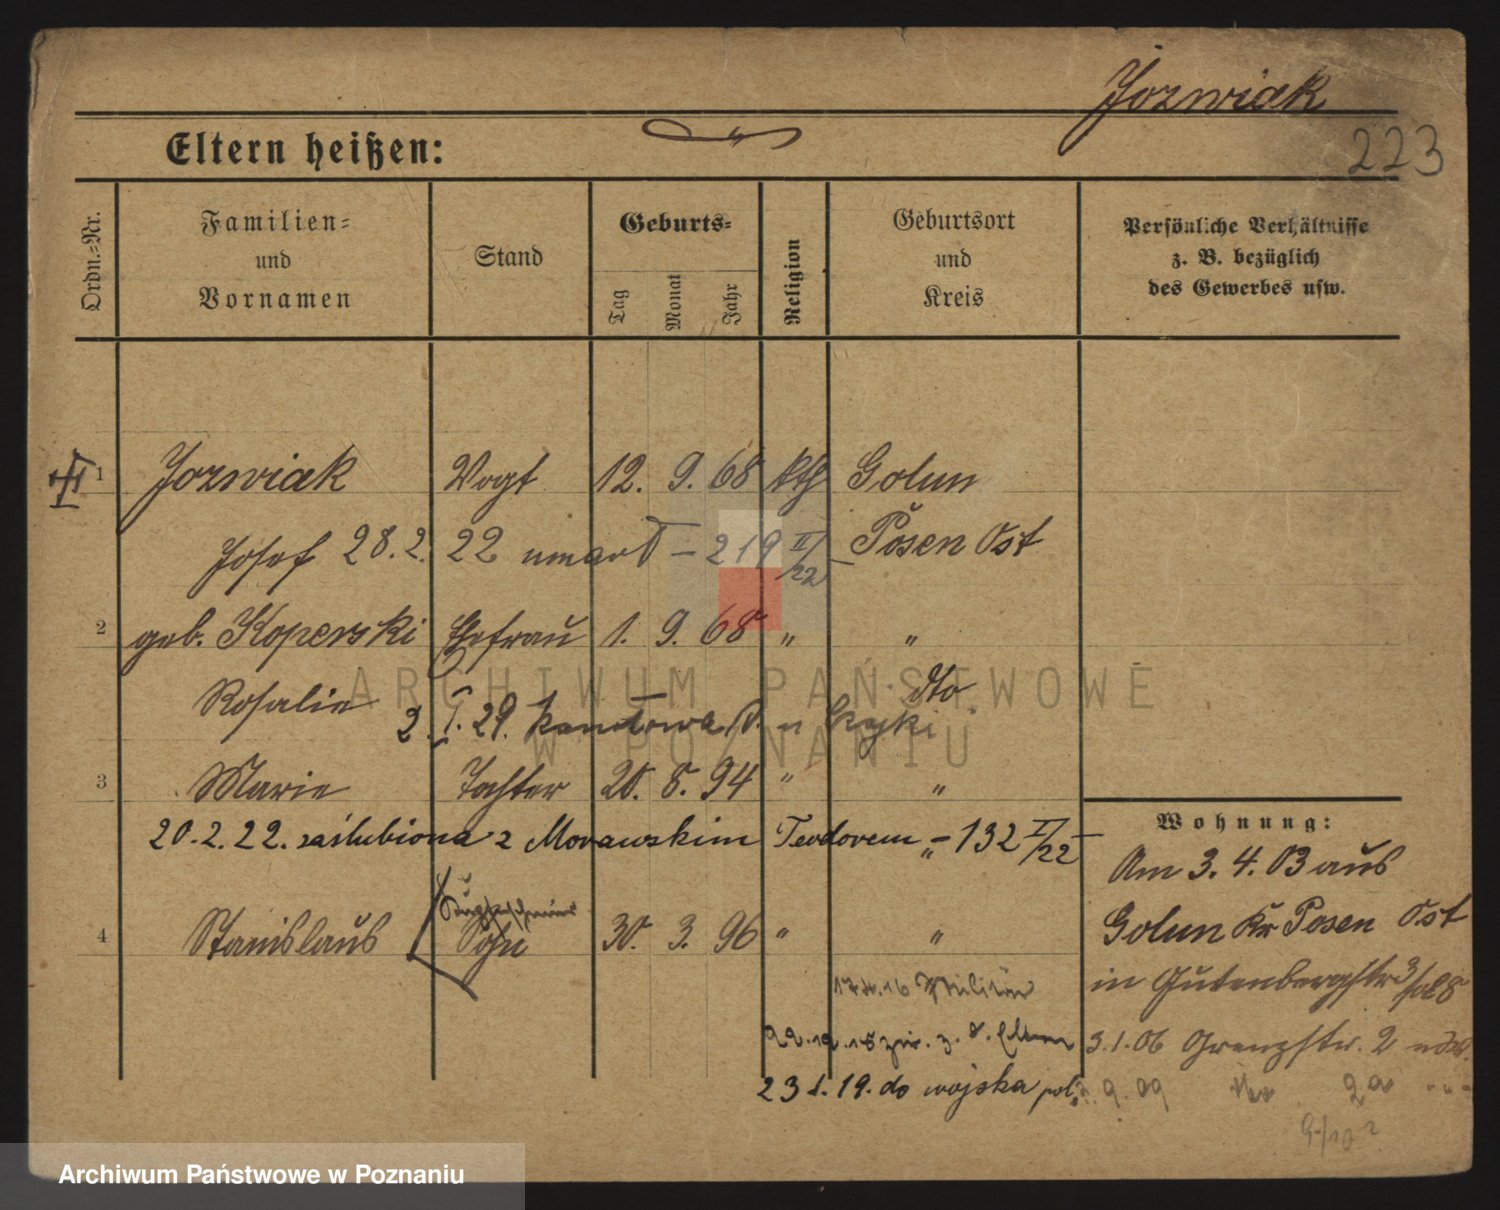 Jozwiak
223
Eltern heißen:
Ordn.-Nr.
Familien- und Vornamen
Stand
Geburts-
Tag
Monat
Jahr
Religion
Geburtsort und Kreis
Persönliche Verhältnisse z. B. bezüglich des Gewerbes usw.
1 Jozwiak Vogt 12. 9. 68 kth Golun
Josef 28.2.22 umarł – 219 II/22 Posen Ost
2 geb. Koperski Ehefrau 1. 9. 68 " "
Rosalie dto
2. I. 29.
3 Marie Tochter 20. 8. 94 " "
20.2.22. zaślubiona z Morawskim Teodorem – 132 II/22
4 Stanislaus Sohn 30. 3. 96 " "
Militär
23 1. 19. do wojska pol.
Wohnung:
Am 3. 4. 03 aus
Golun Kr Posen Ost
in Gutenbergstr
3.1.06 Grenzstr. 2
9. 09 2a
ARCHIWUM PAŃSTWOWE
W POZNANIU
Archiwum Państwowe w Poznaniu